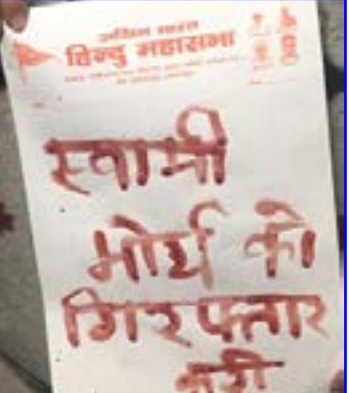 अखिल भारत
हिन्दु महासभा
स्वामी
मोर्य को
गिरफ्तार
करो